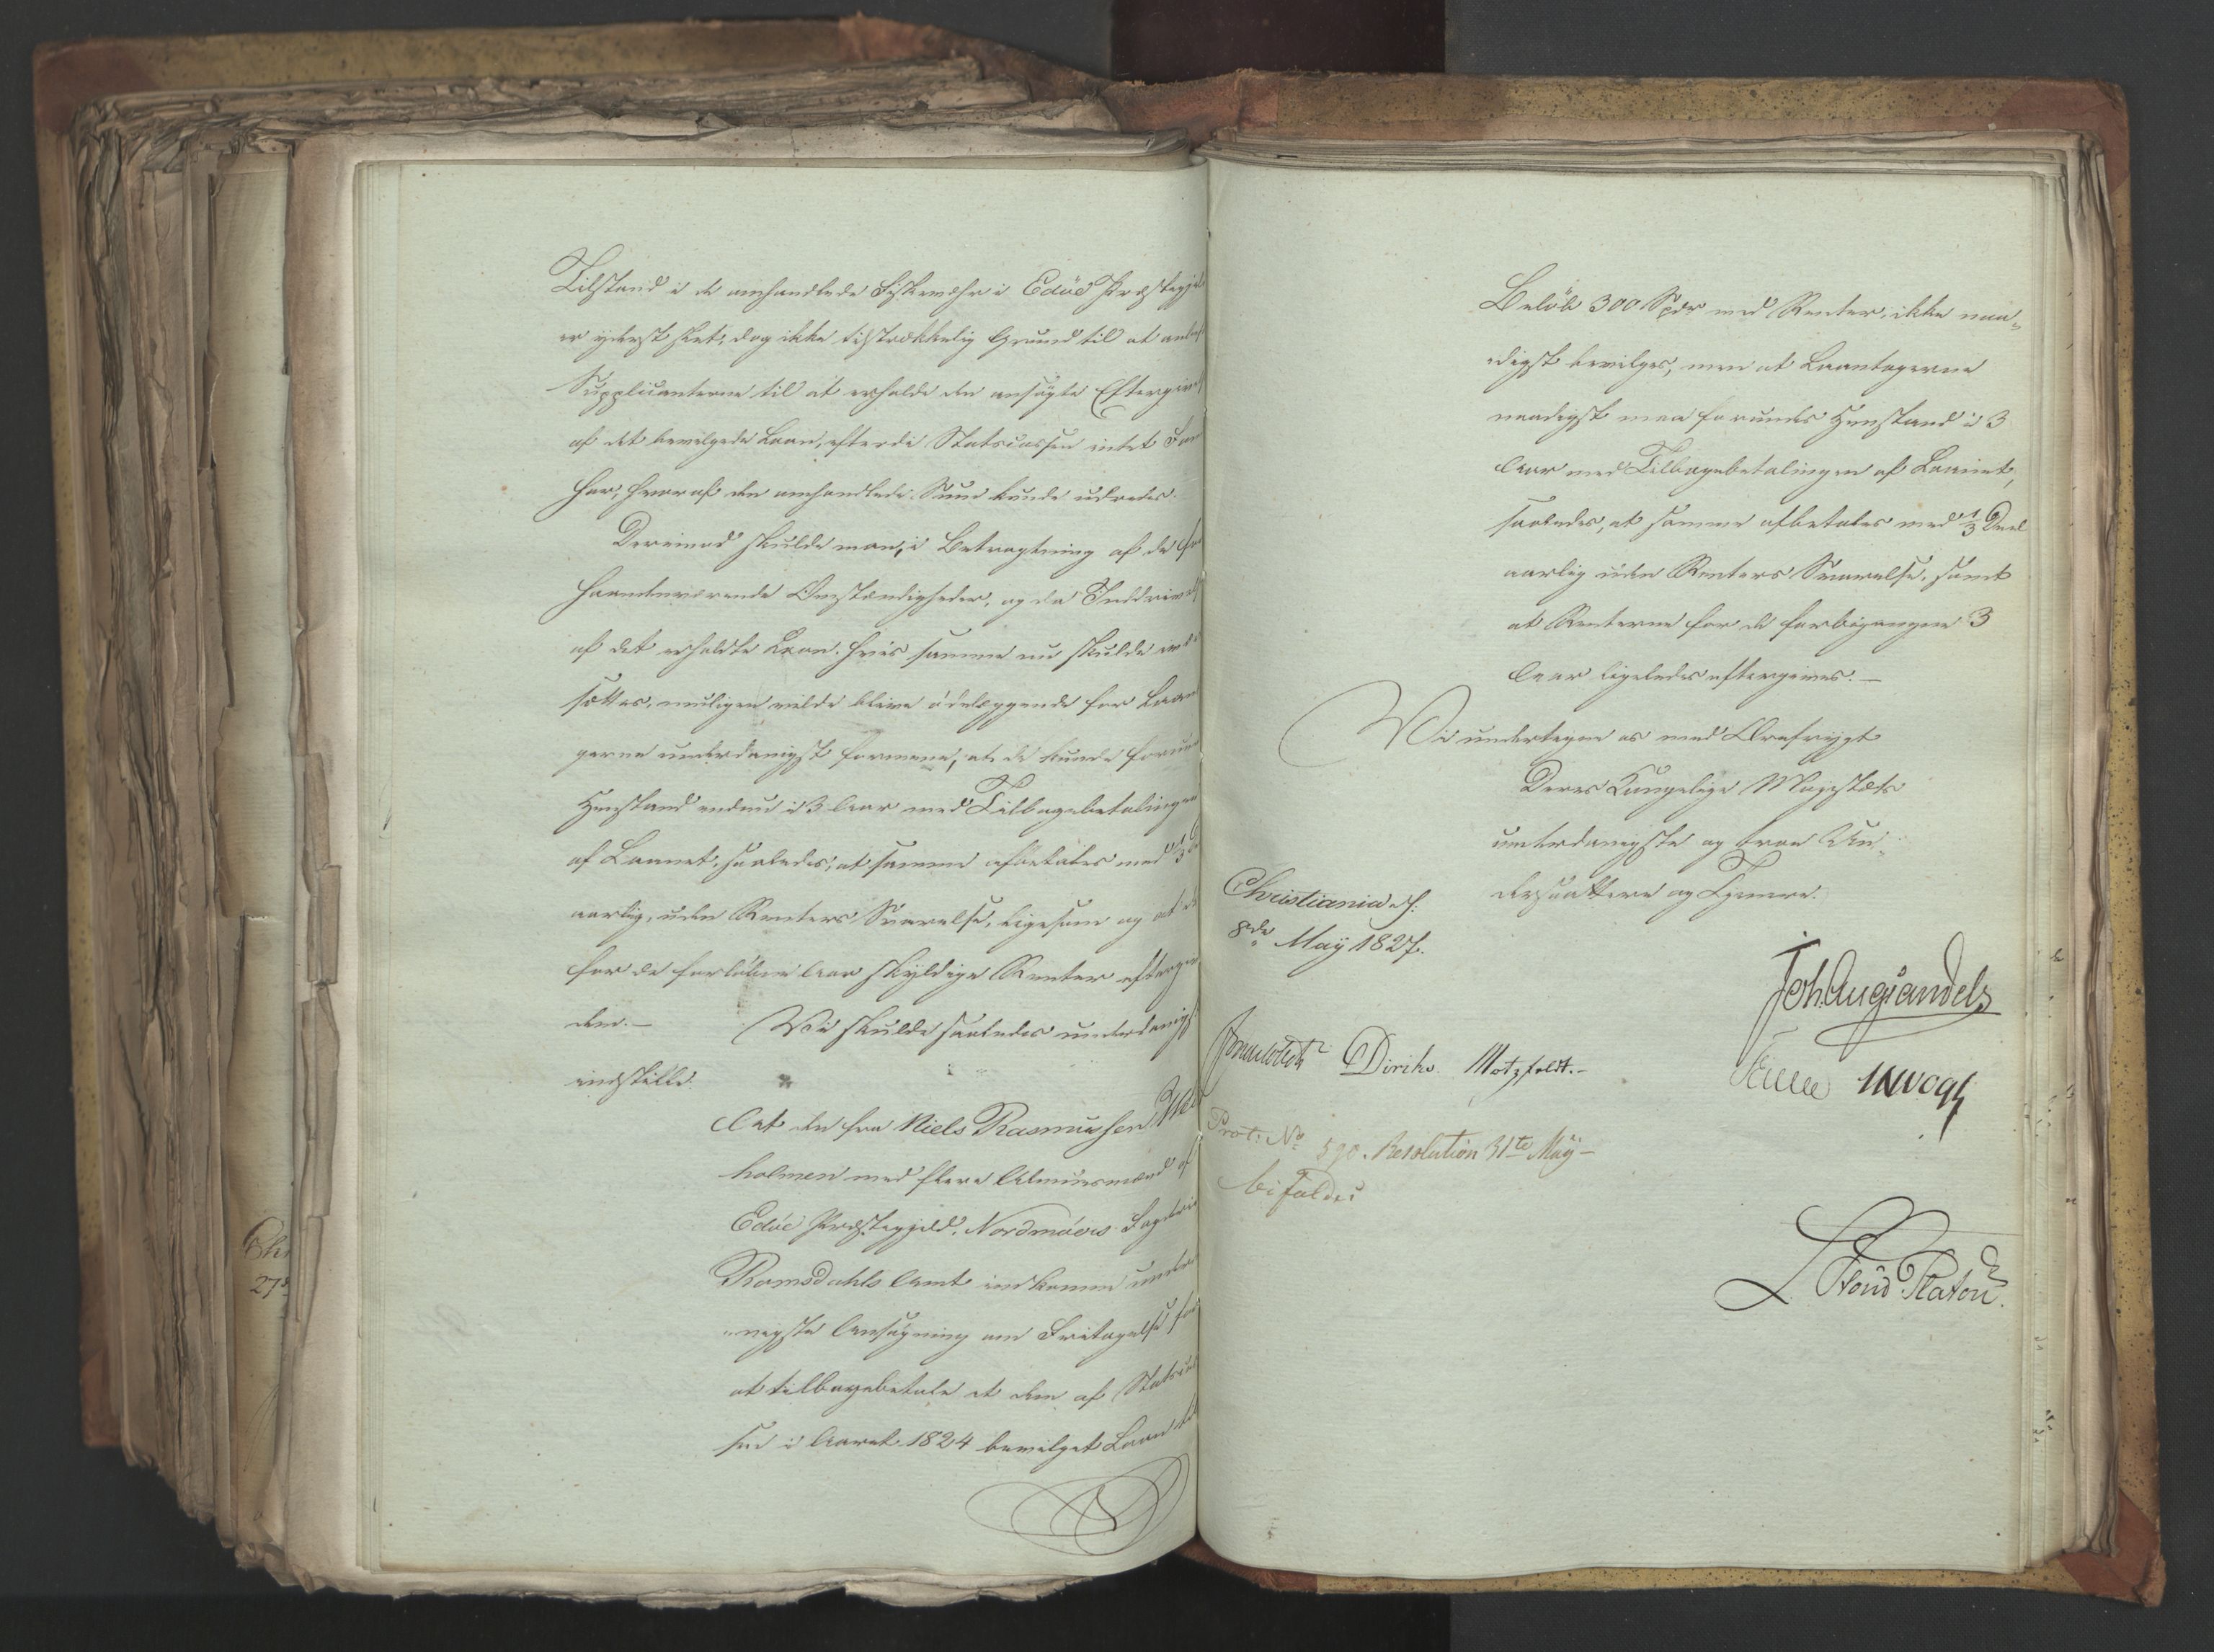 Tilstand i de omhandlede Fiskevæhr i Edöe Præstegjel
er yderst slet, dog ikke tilstrækkelig Grund til at anbef
Supplicanterne til at erholde den ansøgte Eftergivel
af det bevilgede Laan, efterdi Statscassen intet Fon
har, hvoraf den omhandlede Sum kunde udredes.
Derimod skulde man, i Betragtning af de for
haandenværende Omstændigheder, og da Inddrivels
af det erholdte Laan, hvis samme nu skulde
sættes, muligen vilde blive ödelæggende for Laan
gerne underdanigst formene, at de kunde forun
Henstand endnu i 3 Aar med Tilbagebetalingen
af Laanet, saaledes, at samme afbetales med 1/3 D
aarlig, uden Renters Svarelse, ligesom og at de
for de forløbne Aar skyldige Renter eftergives
dem.— Vi skulde saaledes underdanigst
indstille.
At den fra Niels Rasmussen
holmen med flere Almuesmænd af
Edöe Præstegjeld, Nordmöers Fogderie
Romsdahls Amt indkomne underda
nigste Ansøgning om Fritagelse for
at tilbagebetale et dem af Statscas
sen i Aaret 1824 bevilget Laan til
Beløb 300 Spdr med Renter, ikke naa-
digst bevilges, men at Laantagerne
naadigst maa forundes Henstand i 3
Aar med Tilbagebetalingen af Laanet,
saaledes, at samme afbetales med 1/3 Deel
aarlig uden Renters Svarelse, samt
at Renterne for de forbigangne 3
Aar ligeledes eftergives.—
Vi undertegne os med Ærefrygt
Deres Kongelige Majestæts
underdanigste og troe Un-
dersaattere og Tjenere.
Christiania d.
8de May 1827.
Joh. Aug. Sandels
Diriks Motzfeldt.—
Vogt
Prot: No 590. Resolution 31te May—
bifaldes
Stoud Platou.